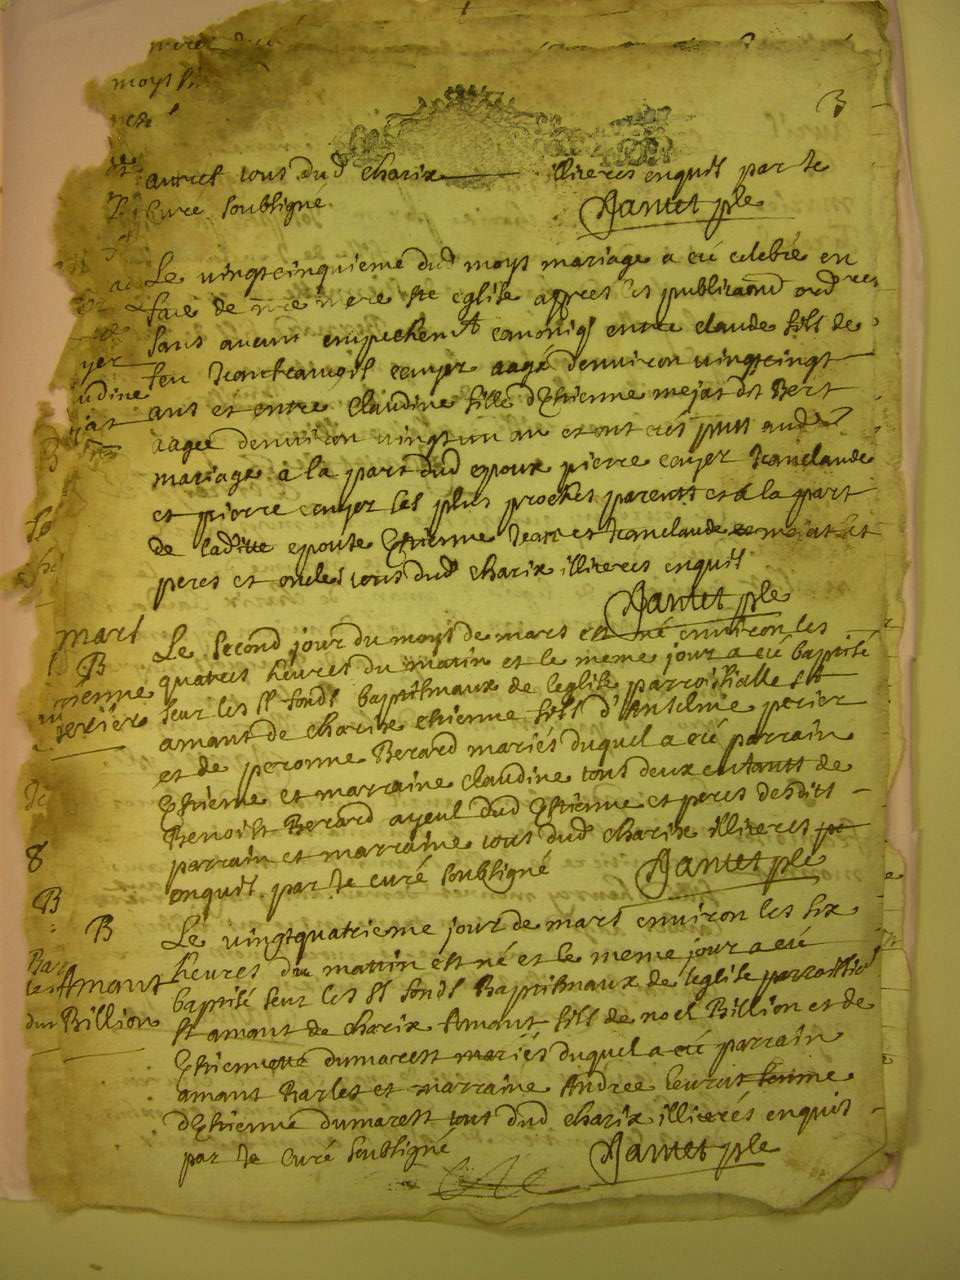 moys
3
autres tous dud charix illiteres enquis par Je
Curé soubsigné
Jantet ptre
Le vingtcinquieme dud moys mariage a eté celebré en
face de nre mere ste eglise apres les publicaons ordres
sans aucuns empeschemt canoniq entre claude fils de
feu Jeanfrancois cenjer aagé denviron vingtcinqt
ans et entre Claudine fille d'Estienne mejat dit Bert
aagee denviron vingtun an et ont eté pntt aud
mariage a la part dud epoux pierre cenjer Jeanclaude
et pierre cenjer les plus proches parents et a la part
de laditte epouse Estienne Jean et Jeanclaude mejat
peres et oncles tous dud charix illiteres enquis
Jantet ptre
mars
B
Le second jour du moys de mars est né environ les
quatres heures du matin et le meme jour a eté baptisé
sur les st fonds baptismaux de leglise parroissialle st
amant de charix estienne fils d'Anselme perier
et de peronne Berard mariés duquel a eté parrain
Estienne et marraine claudine tous deux enfants de
Benoist Berard ayeul dud Estienne et peres desdits
parrain et marraine tous dud charix illiteres
enquis par Je curé soubsigné
Jantet ptre
8
B
B
Amant
Billion
Le vingtquatrieme jour de mars environ les six
heures du mattin est né et le meme jour a eté
baptisé sur les st fonds Baptismaux de leglise parroissial
st amant de charix Amant fils de noel Billion et de
Estiennette dumarest mariés duquel a eté parrain
amant Barlet et marraine Andree femme
d'Estienne dumarest tous dud charix illiterés enquis
par Je Curé soubsigné
Jantet ptre